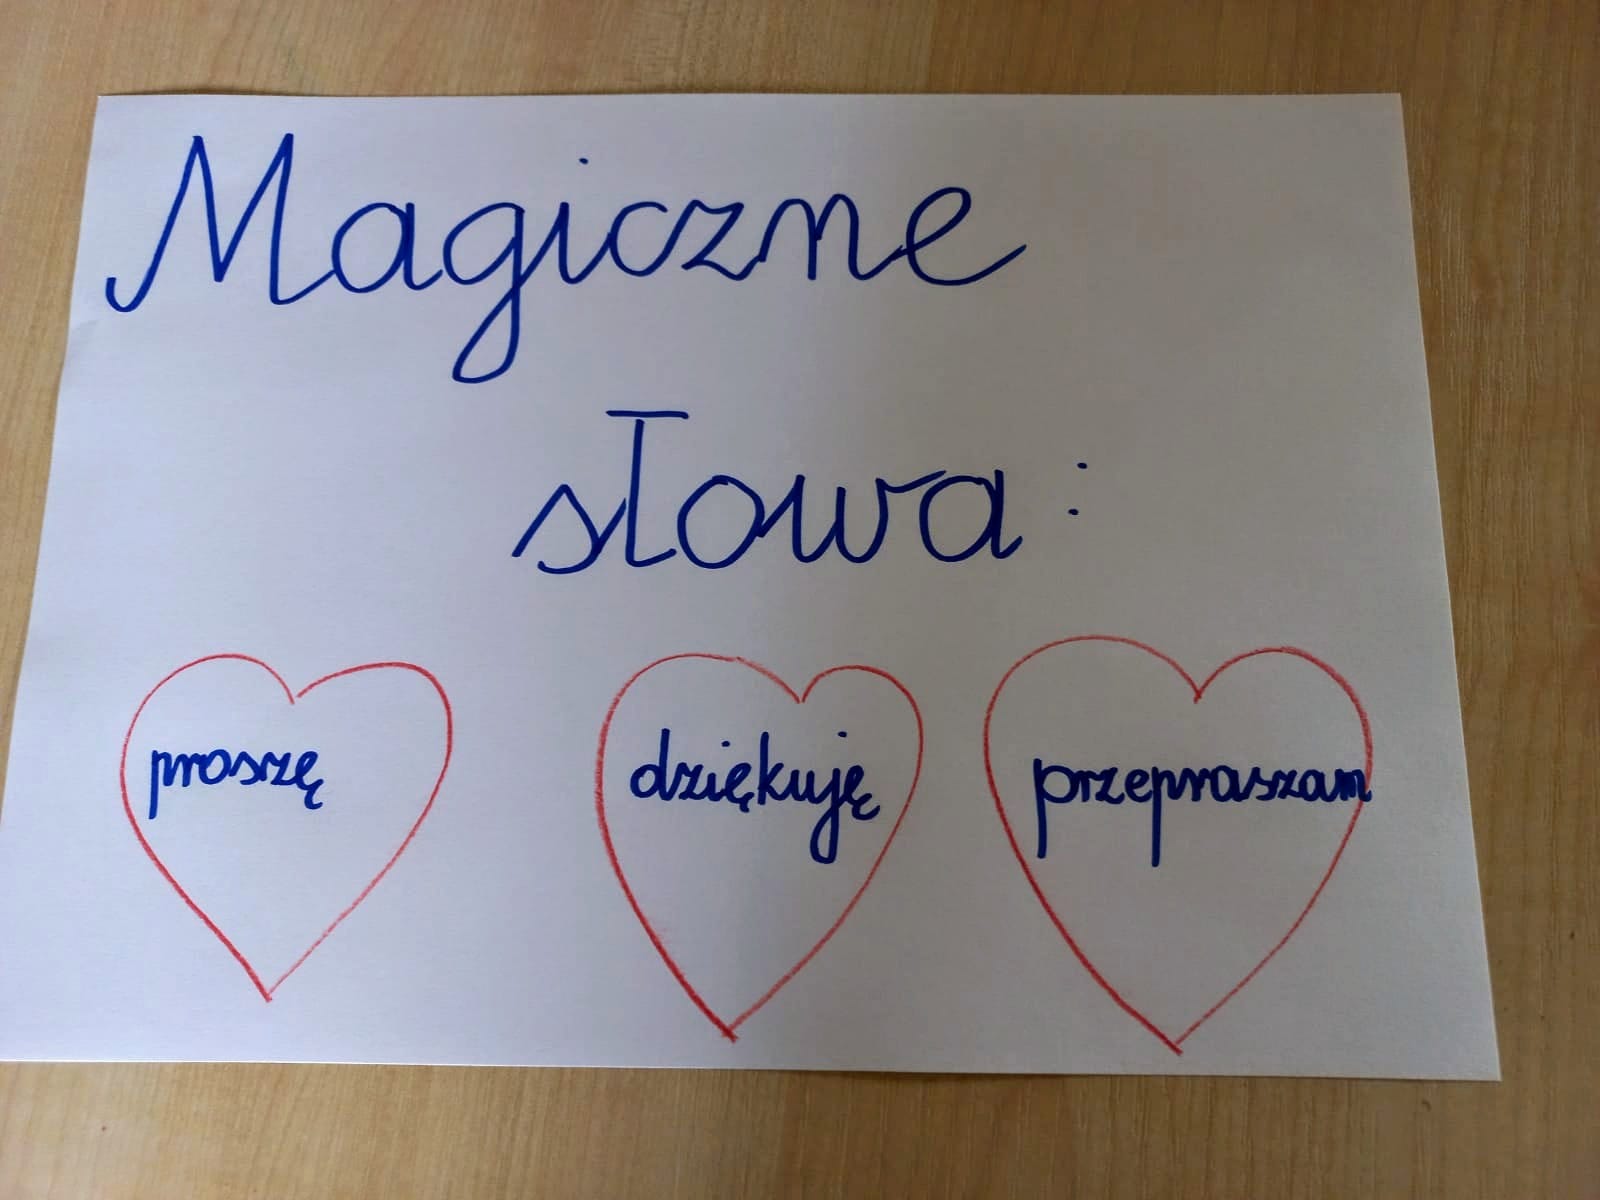 Magiczne
słowa:
proszę dziękuję przepraszam